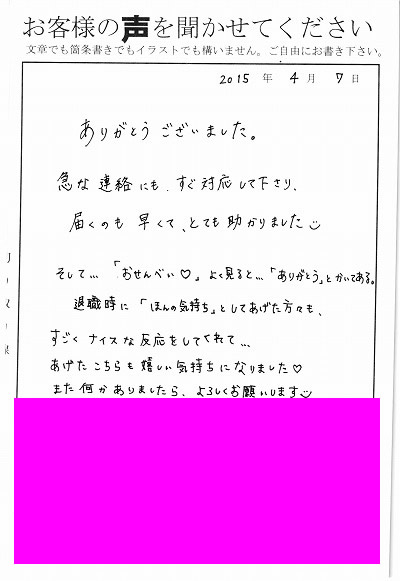 お客様の声を聞かせてください
文章でも箇条書きでもイラストでも構いません。ご自由にお書き下さい。
2015 年 4 月 7 日
ありがとうございました。
急な連絡にも、すぐ対応して下さり、
届くのも早くて、とても助かりました
そして…「おせんべい♡」よく見ると…「ありがとう」とかいてある。
退職時に「ほんの気持ち」としてあげた方々も、
すごくナイスな反応をしてくれて…
あげたこちらも嬉しい気持ちになりました♡
また何かありましたら、よろしくお願いします